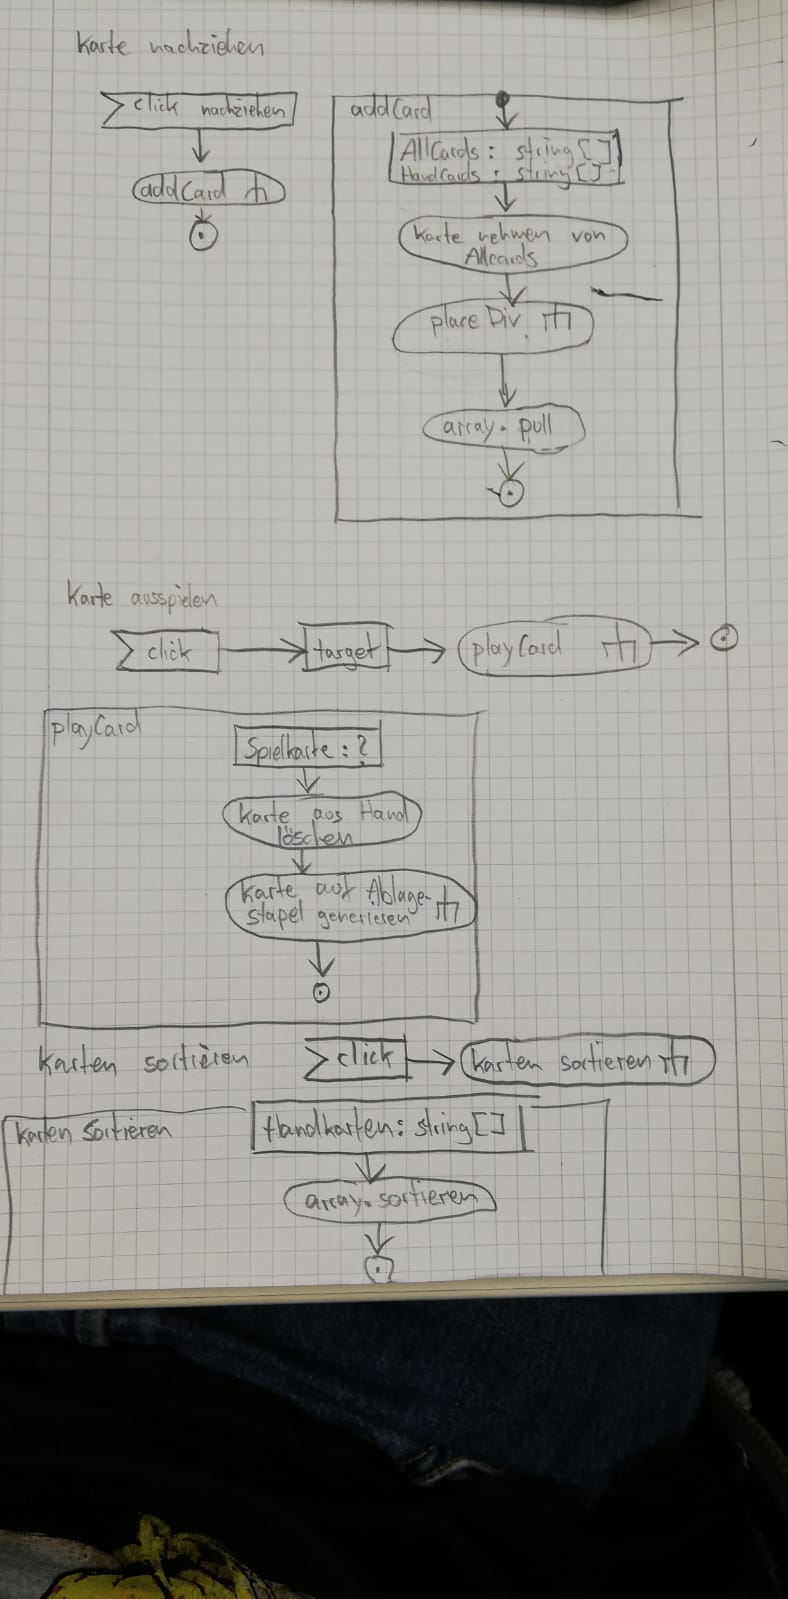 Karte nachziehen
click nachziehen
addCard
addCard
AllCards : string[]
HandCards : string[]
Karte nehmen von
Allcards
place Div.
array. pull
Karte ausspielen
click
target
playCard
playCard
Spielkarte : ?
Karte aus Hand
löschen
Karte auf Ablage-
stapel generieren
Karten sortieren
click
Karten sortieren
Karten Sortieren
Handkarten: string[]
array. sortieren